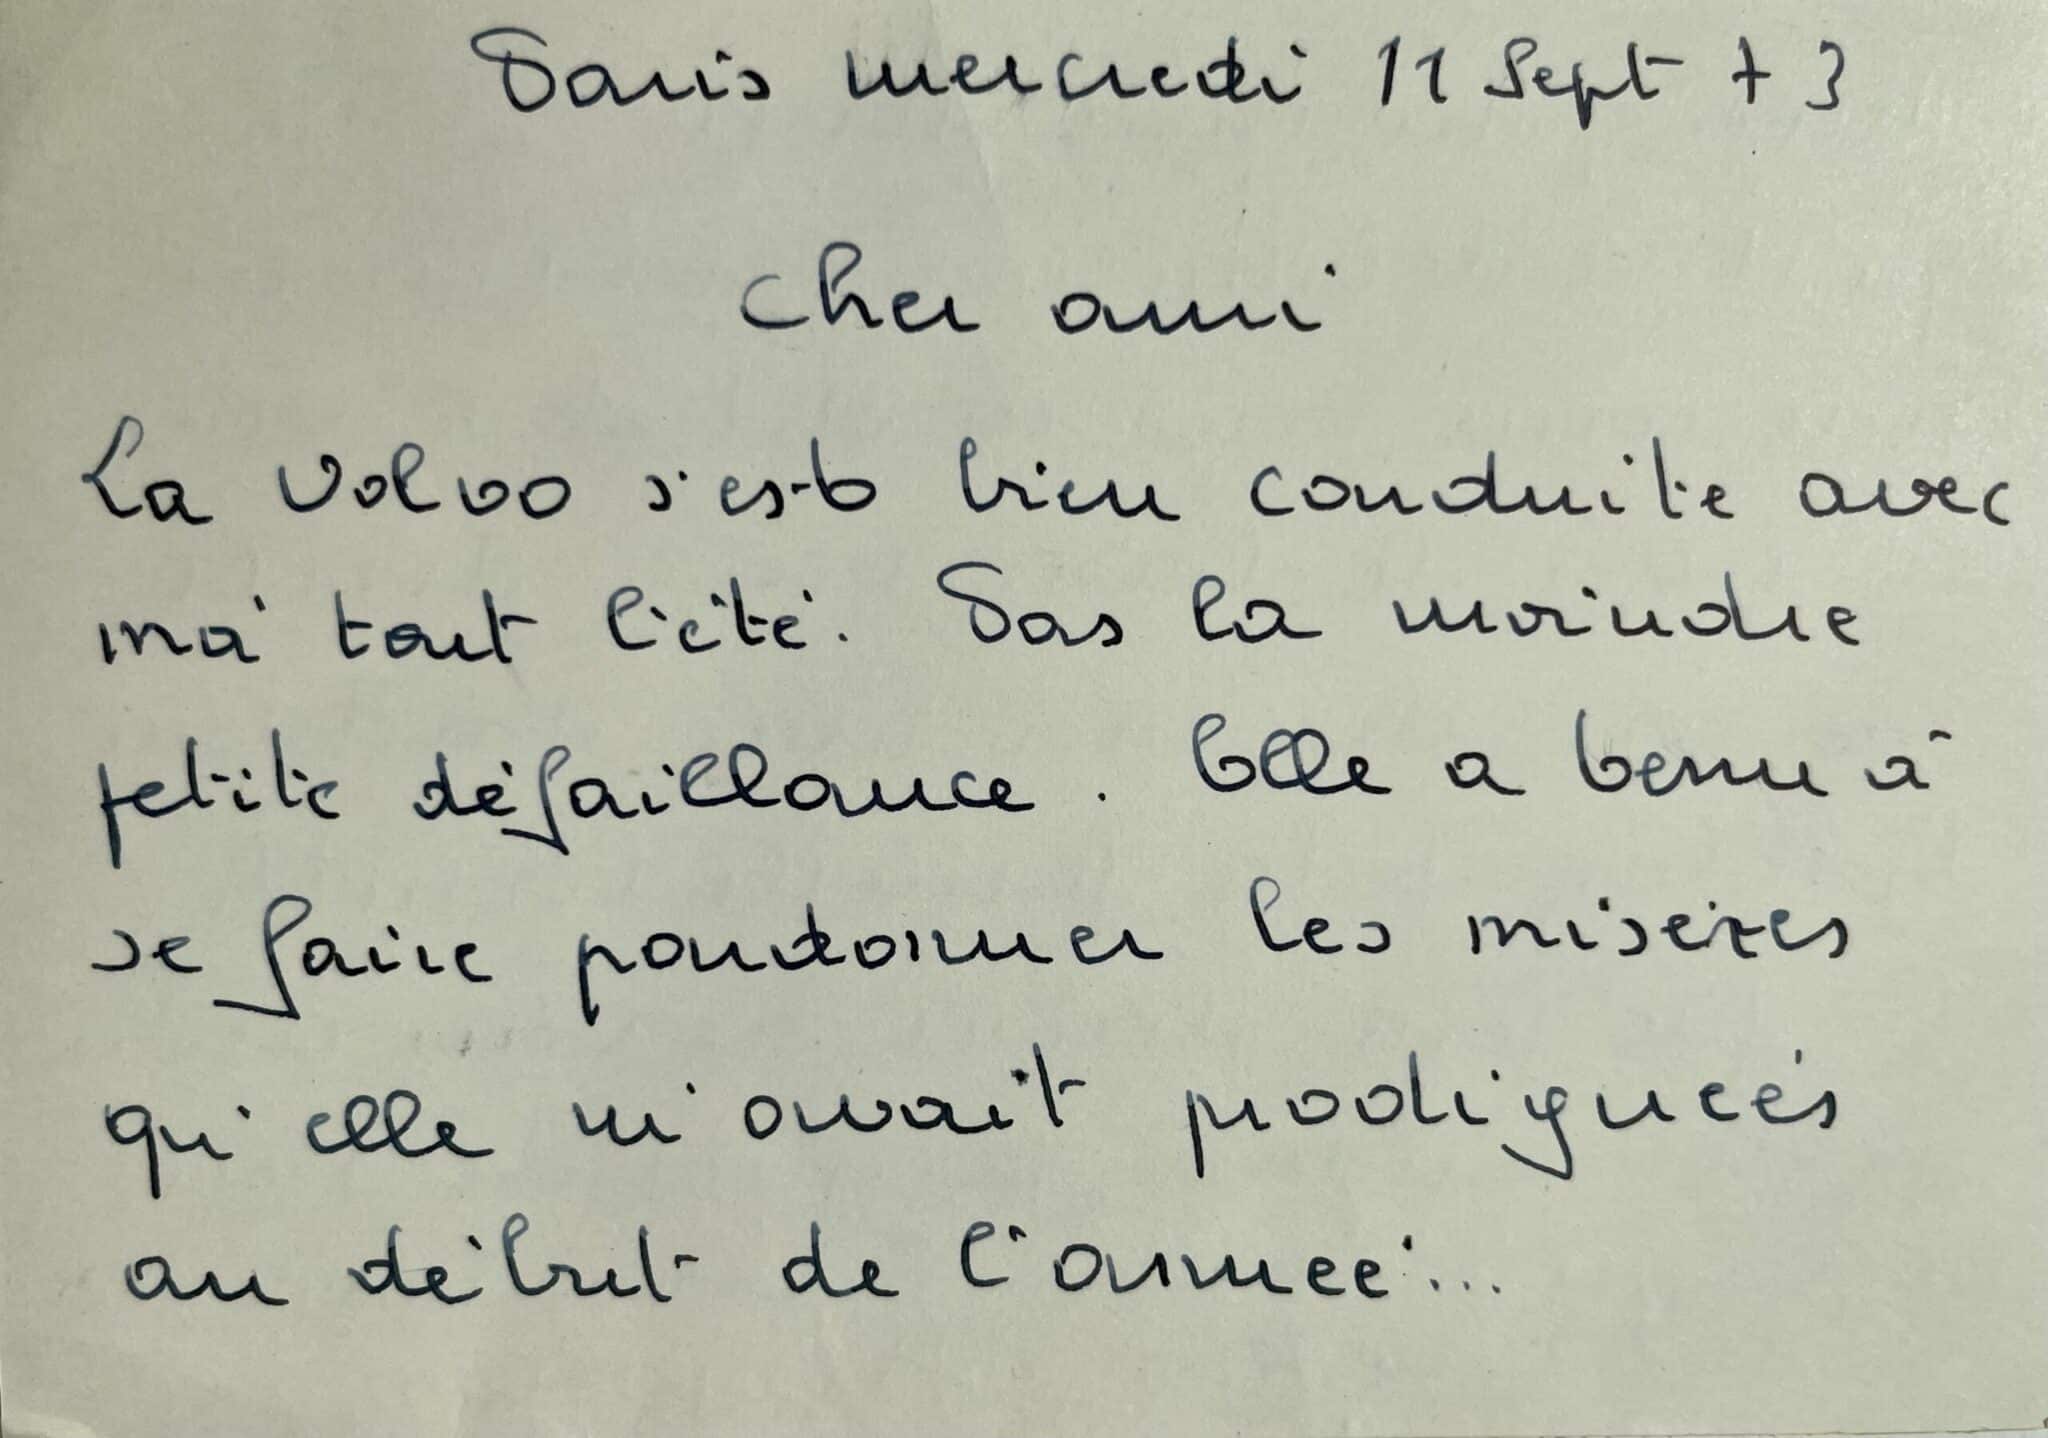 Paris mercredi 11 Sept 73
Cher ami
La Volvo s'est bien conduite avec
moi tout l'été. Pas la moindre
petite défaillance. Elle a tenu à
se faire pardonner les misères
qu'elle m'avait prodiguées
au début de l'année...